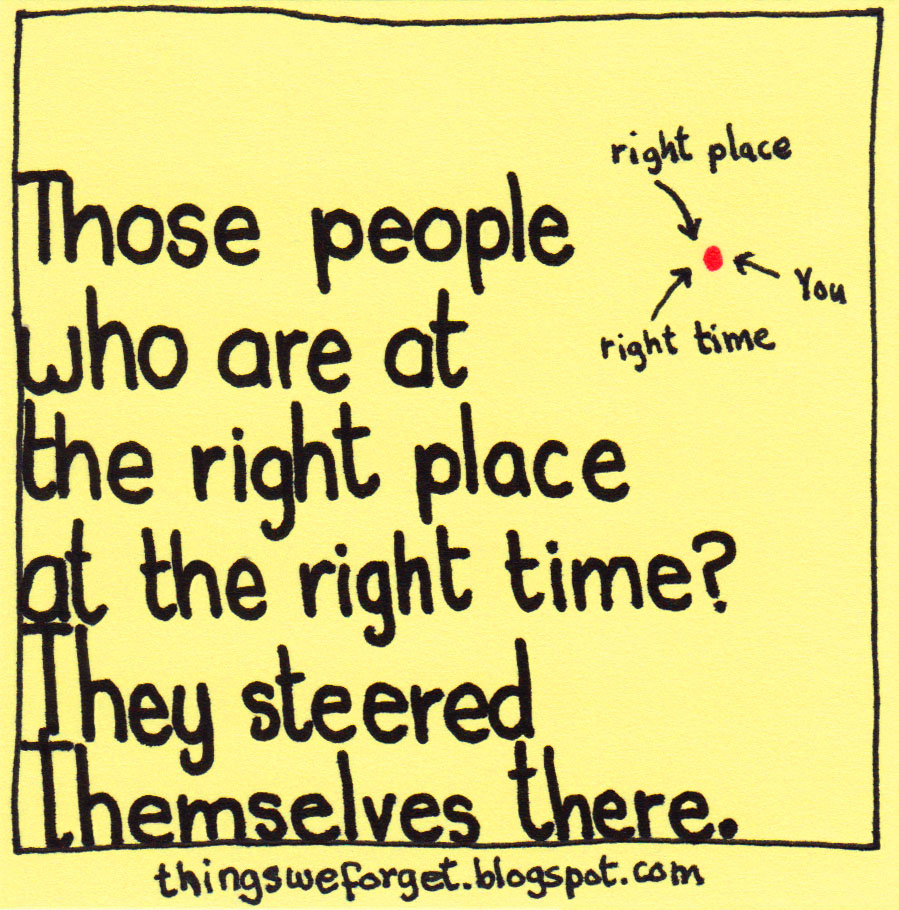 right place
You
right time
Those people
who are at
the right place
at the right time?
They steered
Themselves there.
thingsweforget.blogspot.com